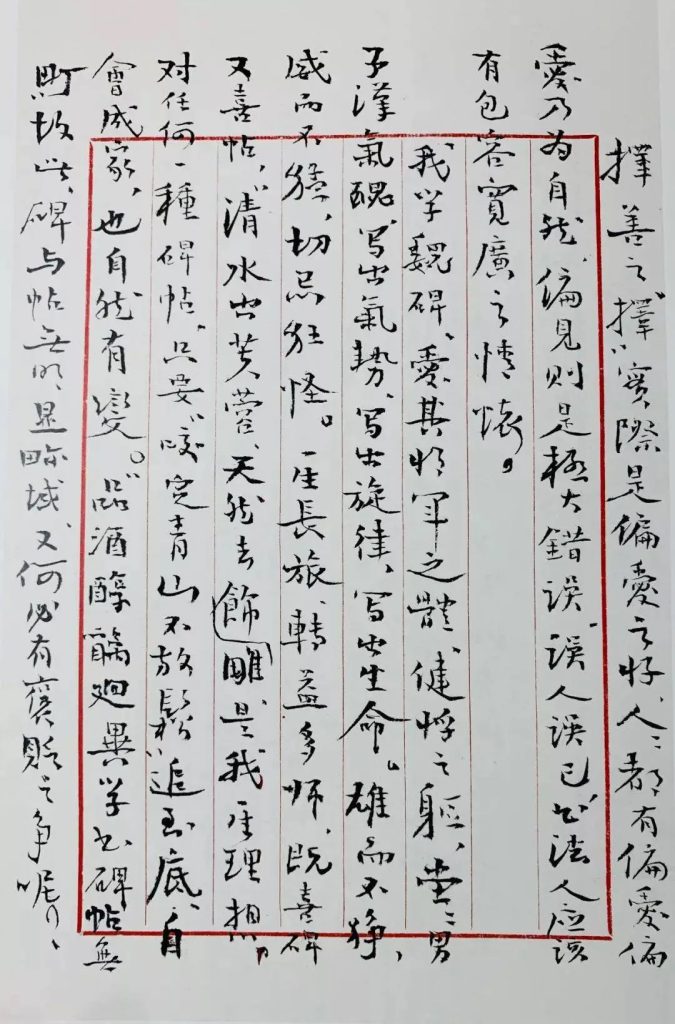 擇善之“擇”實際是偏愛之好、人:都有偏愛偏
愛乃为自然、偏見则是極大錯误、误人误己、书法人应该
有包容寬廣之情怀。
我学魏碑、愛其将军之體、健悍之躯、堂:男
子漢氣魄、写出氣势、写出旋律、写出生命。雄而不狰、
威而不猛、切忌狂怪。一生長旅、轉益多师、既喜碑
又喜帖、“清水出芙蓉、天然去飾雕”是我生理想。
对任何一種碑帖、只要“咬定青山不放鬆”追到底、自
會成家、也自然有變。品酒醇醨迥異学书碑帖無
町故此、碑与帖无明显畛域、又何必有褒贬之争呢！